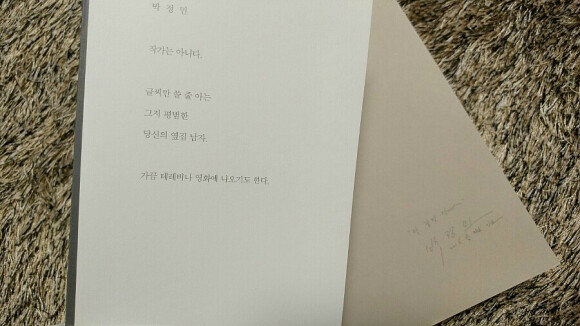 박 정 민
작가는 아니다.
글씨만 쓸 줄 아는
그저 평범한
당신의 옆집 남자.
가끔 테레비나 영화에 나오기도 한다.